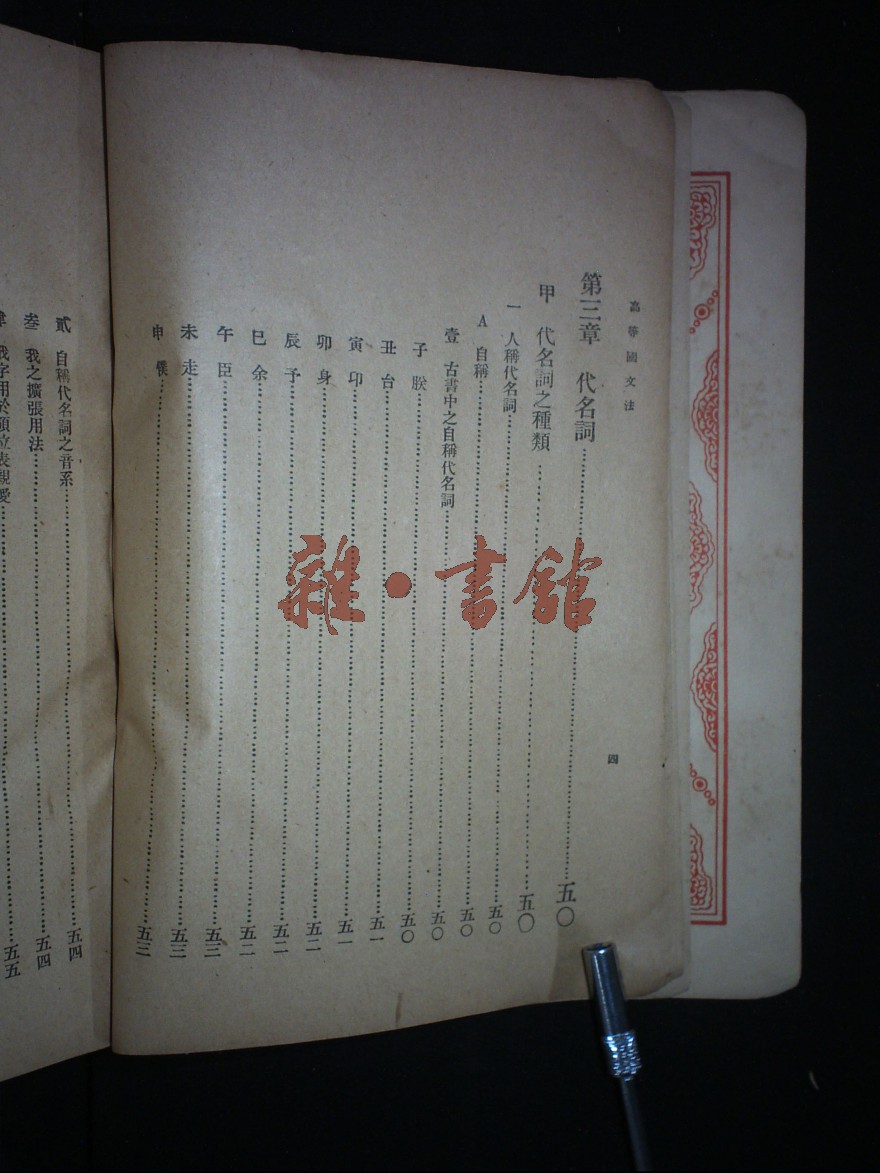 高等國文法
四
第三章 代名詞……五〇
甲 代名詞之種類……五〇
一 人稱代名詞……五〇
A 自稱……五〇
壹 古書中之自稱代名詞……五〇
子 朕……五〇
丑 台……五一
寅 卬……五一
卯 身……五二
辰 予……五二
巳 余……五二
午 臣……五三
未 走……五三
申 僕……五三
貳 自稱代名詞之音系……五四
叁 我之擴張用法……五四
我字用於領位表親愛……五五
雜·書館